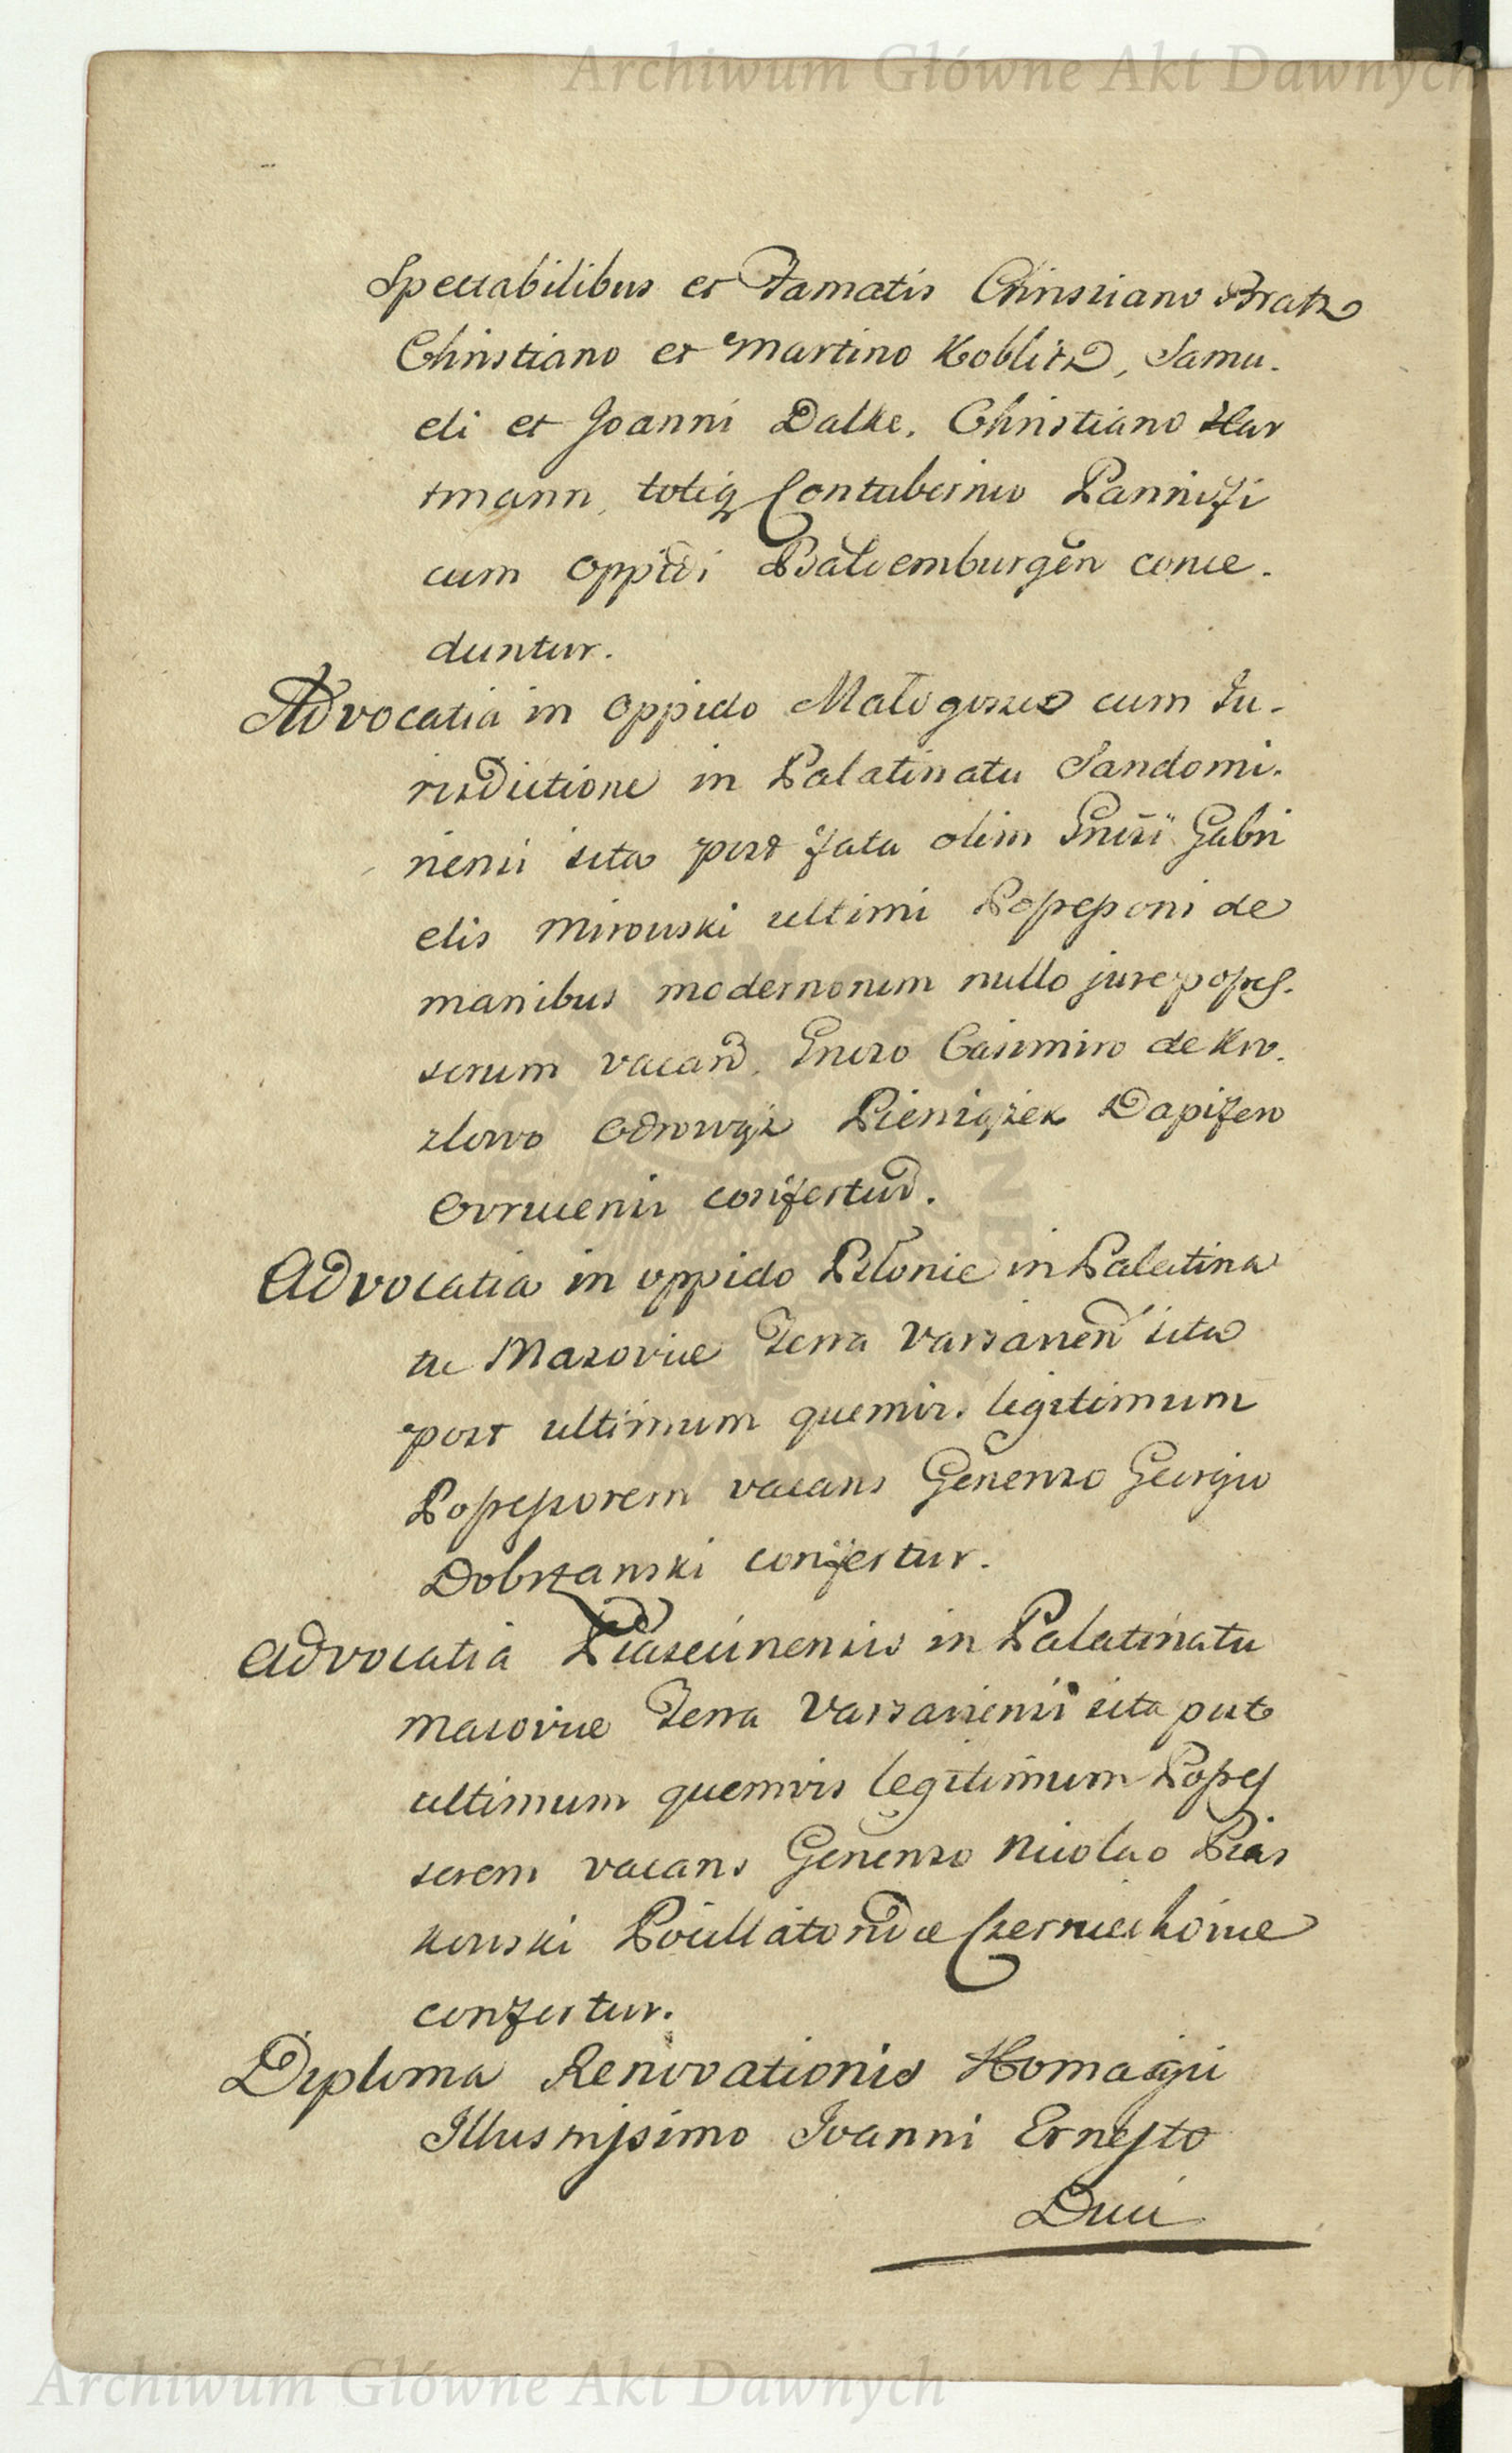 Archiwum Główne Akt Dawnych
Spectabilibus et Famatis Christiano Bratz
Christiano et Martino Koblitz, Samu.
eli et Joanni Dalke, Christiano Har
tmann, totiq Contubernio Pannifi
cum Oppidi Balvemburgen conce.
duntur.
Advocatia in Oppido Małogoszcz cum Ju.
risdictione in Palatinatu Sandomi.
riensi sita post fata olim Gnrsi Gabri
elis Mirowski ultimi Possessoris de
manibus modernorum nullo jure posses.
sorum vacand. Gneroso Casimiro de Kro.
zlowo Odrowąż Pieniążek Dapifero
Ovrucensi confertur.
Advocatia in oppido Błonie in Palatina
tu Masoviae Terra Varsavien sita
post ultimum quemvis legitimum
Possessorem vacans Generoso Georgio
Dobrzanski confertur.
Advocatia Piasecinensis in Palatinatu
Masoviae Terra Varsaviensi sita post
ultimum quemvis legitimum Posses
sorem vacans Generoso Nicolao Pias
kowski Pocillatoridae Czerniechoviae
confertur.
Diploma Renovationis Homagii
Illustrissimo Joanni Ernesto
Duci
Archiwum Główne Akt Dawnych